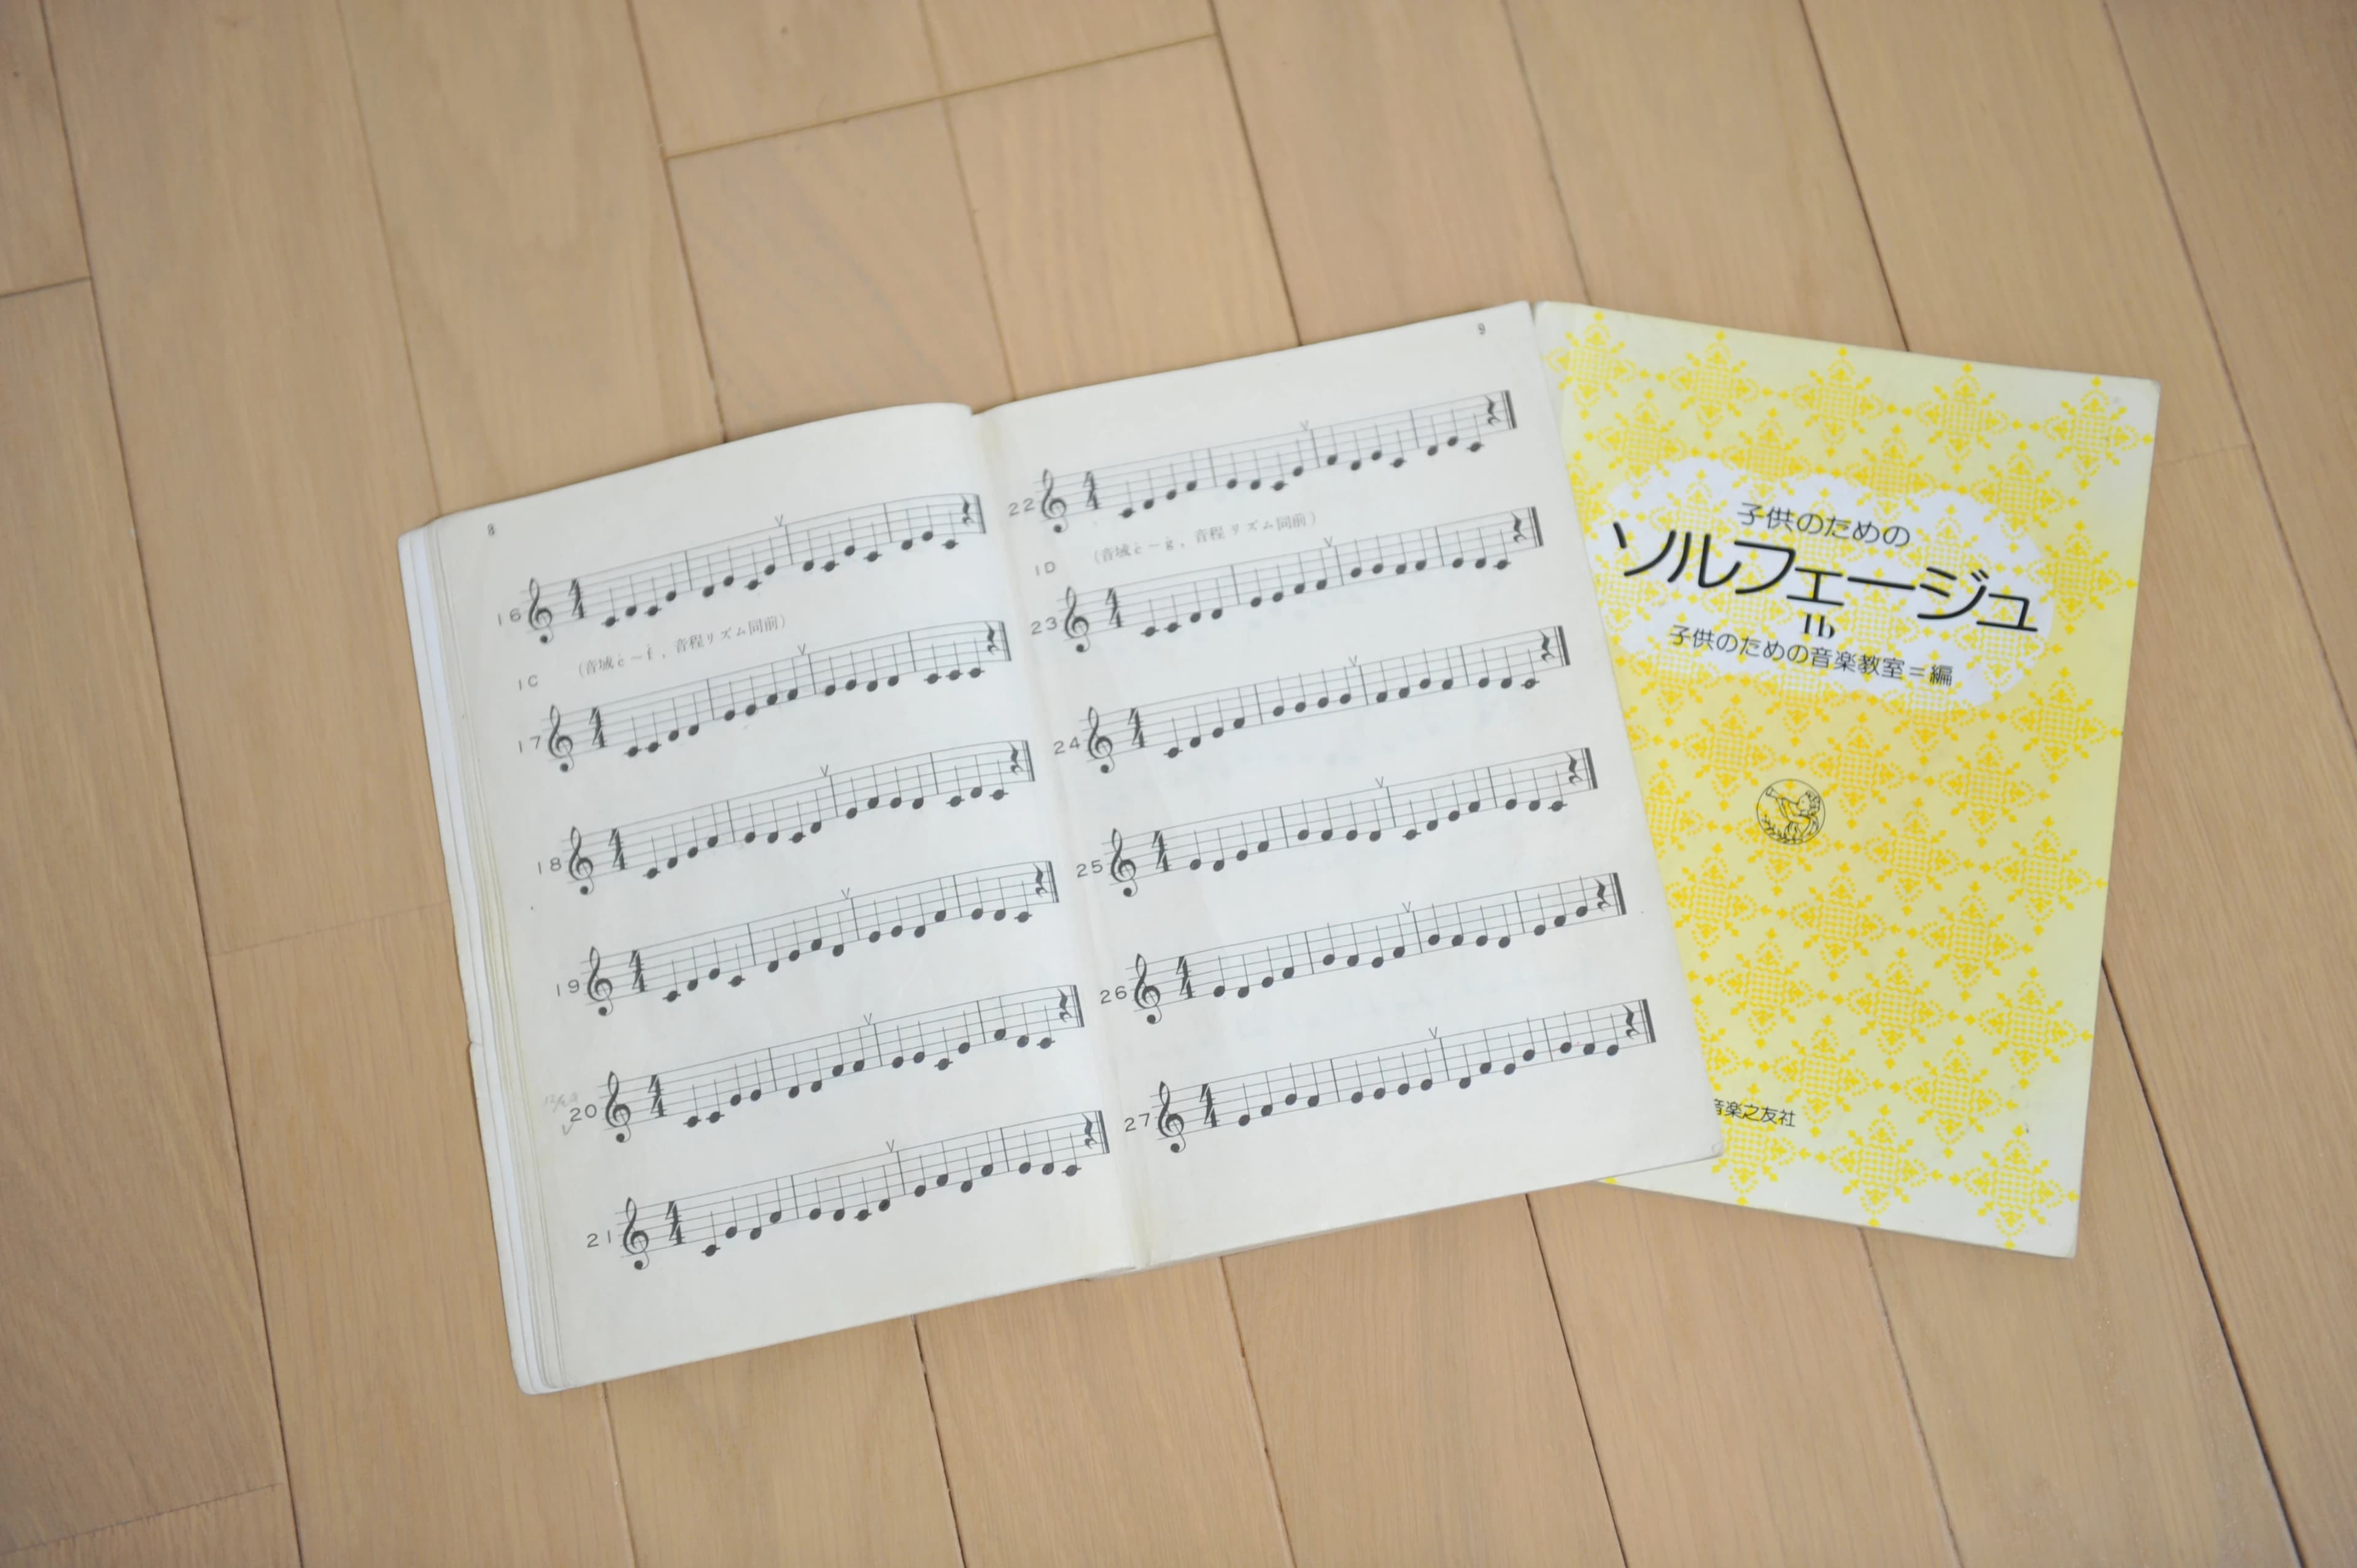 8
16
1C (音域c̄〜f̄, 音程リズム同前)
17
18
19
20
21
9
22
1D (音域c̄〜ḡ, 音程リズム同前)
23
24
25
26
27
子供のための
ソルフェージュ
1b
子供のための音楽教室=編
音楽之友社